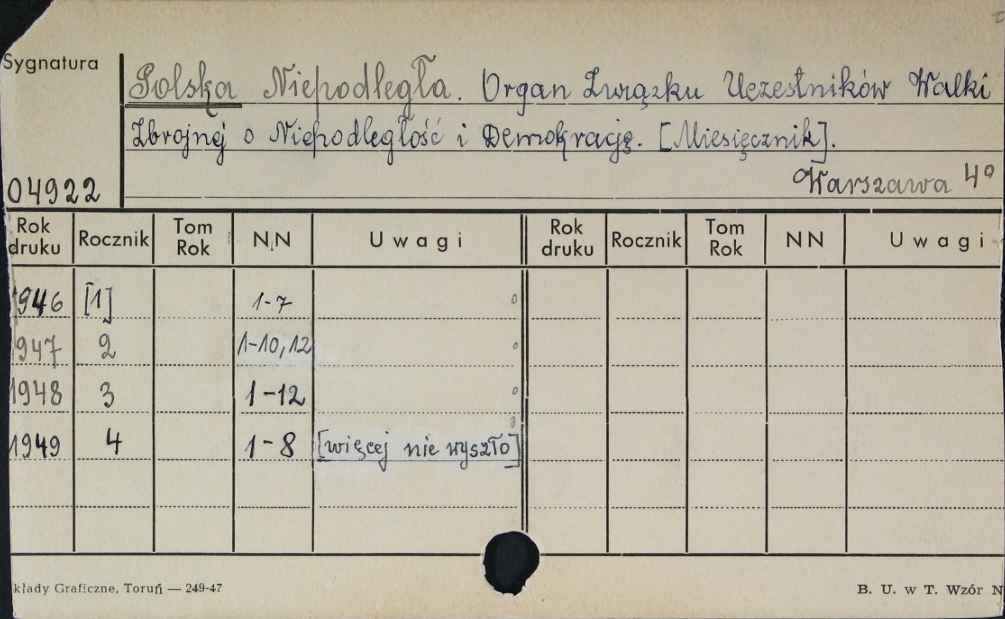 Sygnatura
Polska Niepodległa. Organ Związku Uczestników Walki
Zbrojnej o Niepodległość i Demokrację. [Miesięcznik].
04922 Warszawa 4º
Rok druku Rocznik Tom Rok N.N Uwagi Rok druku Rocznik Tom Rok NN Uwagi
1946 [1] 1-7
1947 2 1-10, 12
1948 3 1-12
1949 4 1-8 [więcej nie wyszło]
kłady Graficzne, Toruń — 249-47 B. U. w T. Wzór N